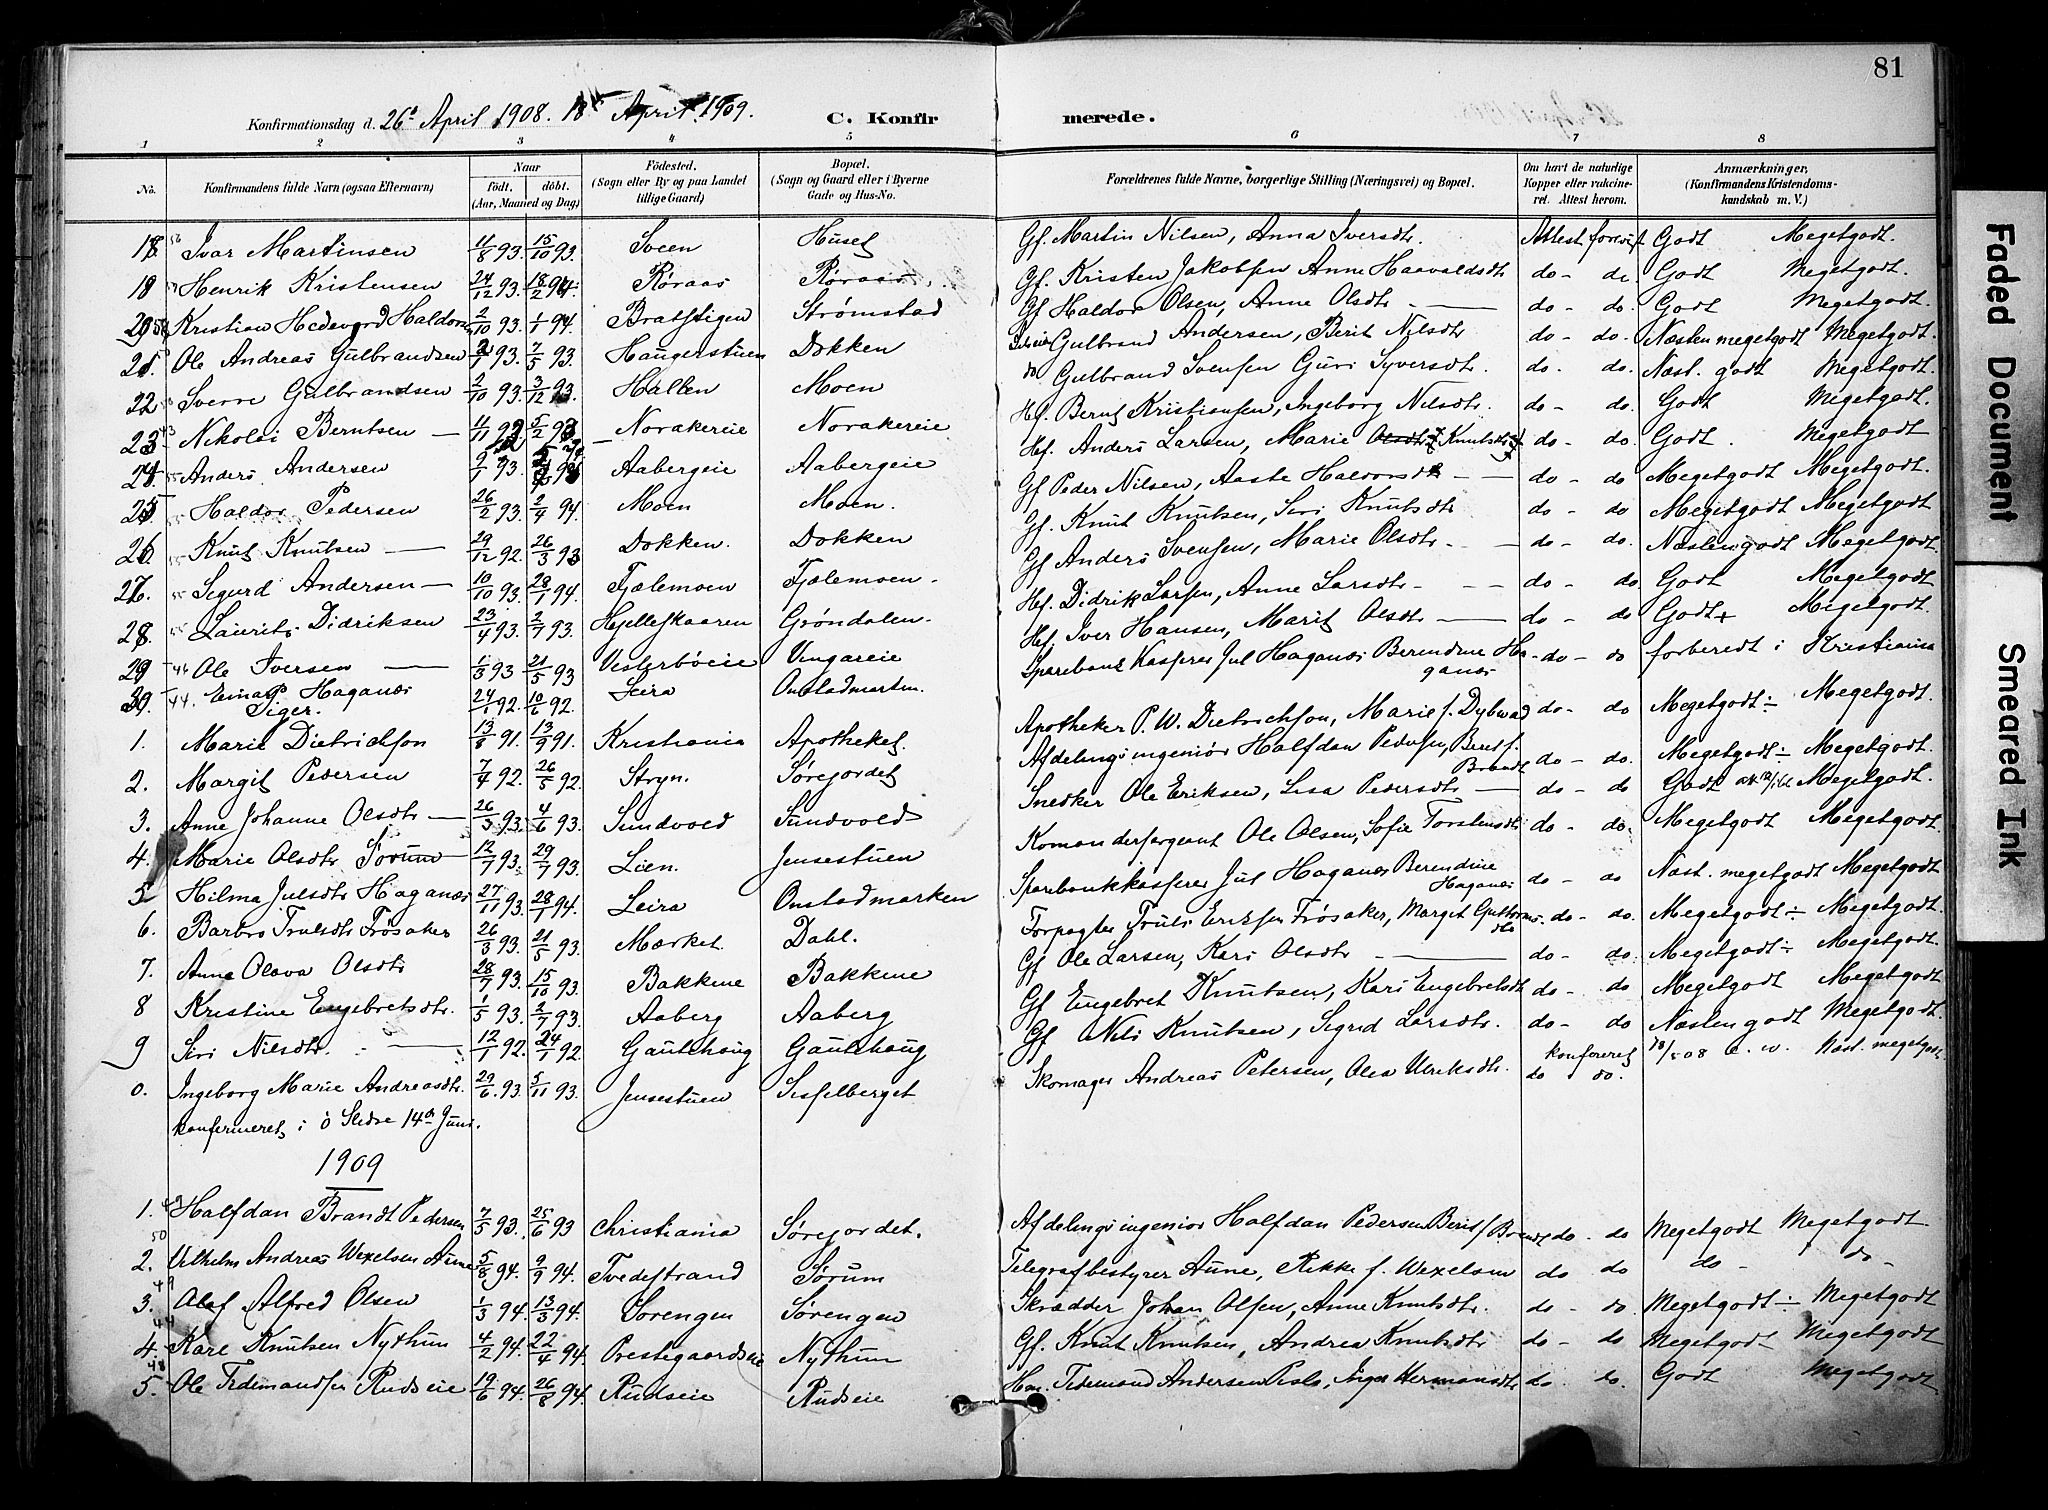 81
Konfirmationsdag d. 26d April 1908. 18de April 1909. C. Konfirmerede.
1 2 3 4 5 6 7 8
No. Konfirmandens fulde Navn (ogsaa Efternavn) Naar födt. döbt. (Aar, Maaned og Dag) Födested. (Sogn eller By og paa Landet tillige Gaard) Bopæl. (Sogn og Gaard eller i Byerne Gade og Hus-No. Forældrenes fulde Navne, borgerlige Stilling (Næringsvei) og Bopæl. Om havt de naturlige Kopper eller vakcineret. Attest herom. Anmærkninger, (Konfirmandens Kristendomskundskab m. V.)
18 Ivar Martinsen 11/8 93. 15/10 93. Sveen Huset Gf. Martin Nilsen, Anna Iversdtr. Attest forevist Godt Megetgodt.
19 Henrik Kristensen 24/12 93. 18/2 94. Røraas Røraas Gf. Kristen Jakobsen Anne Haavaldsdtr do - do Godt Megetgodt.
20 Kristian Hedevard Haldorsen 2/10 93. 1/1 94. Bratstigen Strømstad Gf Haldor Olsen, Anne Olsdtr do - do. Godt Megetgodt.
21. Ole Andreas Gulbrandsen 2/1 93. 7/5 93. Haugerstuen Dokken Gulbrand Andersen, Berit Nilsdtr do - do. Næsten megetgodt Megetgodt.
22 Sverre Gulbrandsen 2/10 93. 3/12 93. Hallen Moen do Gulbrand Svensen Guri Syversdtr. do. do. Næst. godt Megetgodt.
23 Nikolai Berntsen 11/11 92 5/2 93 Norakereie Norakereie Hf. Bernt Kristiansen, Ingeborg Nilsdtr. do - do. Godt Megetgodt.
24 Anders Andersen 9/1 93. Aabergeie Aabergeie Hf. Anders Larsen, Marie Olsdtr Knutsdtr do - do. Godt. Megetgodt
25 Haldor Pedersen 26/2 93. 2/4 94. Moen Moen. Gf Peder Nilsen, Aaste Haldorsdtr do - do Megetgodt Megetgodt.
26 Knut Knutsen 29/12 92. 26/3 93 Dokken. Dokken Gf. Knut Knutsen, Siri Knutsdtr do - do Megetgodt Megetgodt
27. Sigurd Andersen 10/10 93. 28/1 94. Fjælemoen Fjælemoen Gf Anders Svensen, Marie Olsdtr. do - do. Næstengodt Megetgodt.
28. Laurits Didriksen 23/4 93. 2/7 93. Hjelleskaaren Grøndalen Hf. Didrik Larsen, Anne Larsdtr do - do Godt Megetgodt
29 Ole Iversen 1/3 93 21/5 93 Vesterbøeie Vengareie Hf. Iver Hansen, Marit Olsdtr do - do Godt+ Megetgodt.
30. Einar Haganæs 24/1 92. 10/6 92. Leira Onstadmarken. Sparebank Kasserer Jul Haganæs Berendine Haganæs do - do forberedt i Kristiania
Piger.
1. Marie Dietrichson 13/8 91. 13/9 91. Kristiania Apotheket. Apotheker P. W. Dietrichson, Marie f. Dybwad do - do Megetgodt÷ Megetgodt.
2. Margit Pedersen 7/4 92. 26/5 92. Stryn. Sørejordet Afdelingsingeniör Halfdan Pedersen, Berit f. Brandt do - do. Megetgodt÷ Megetgodt.
3. Anne Johanne Olsdtr 26/3 93. 4/6 93. Sundvold Sundvold Snedker Ole Eriksen, Lisa Pedersdtr do - do Godt Megetgodt.
4. Marie Olsdtr Sörum 12/7 93. 29/7 93. Lien. Jensestuen Komandersergeant Ole Olsen, Sofie Torstensdtr do - do. Megetgodt Megetgodt.
5 Hilma Julsdtr Haganæs 27/11 93. 28/1 94. Leira Onstadmarken Sparebankkasserer Jul Haganæs Berendine Haganæs do - do Næst. megetgodt Megetgodt.
6. Barbro Trulsdtr Frösaker 26/3 93. 21/5 93. Mærket. Dahl. Forpagter Truls Eriksen Frøsaker, Margit Guttormsdtr do - do. Megetgodt÷ Megetgodt.
7. Anne Olava Olsdtr 28/7 93. 15/10 93. Bakkene Bakkene Gf Ole Larsen, Kari Olsdtr do - do. Megetgodt÷ Megetgodt.
8 Kristine Engebretsdtr. 1/5 93. 2/7 93. Aaberg Aaberg Gf Engebret Knutsen, Kari Engebretsdt do - do Megetgodt Megetgodt
9 Siri Nilsdtr. 12/1 92. 24/1 92. Gautehoug Gautehoug Gf Nils Knutsen, Sigrid Larsdtr. do - do Næstengodt Megetgodt.
0. Ingeborg Marie Andreasdtr. 29/6 93. 5/11 93. Jensestuen Sisselberget Skomager Andreas Petersen, Olea Ulriksdtr. do do. konfereret 18/5 08 C. W. Næst. megetgodt
konfermeret i Ö Slidre 14de Juni.
1909
1. Halfdan Brandt Pedersen 7/5 93. 25/6 93 Christiania Sørejordet. Afdelingsingeniör Halfdan Pedersen Berit f Brandt do - do Megetgodt Megetgodt
50
2. Vilhelm Andreas Wexelsen Aune 5/8 94. 9/9 94. Tvedestrand Sørum Telegrafbestyrer Aune, Rikke f. Wexelsen do do do - do -
49
3. Olaf Alfred Olsen 1/3 94. 13/3 94. Sørengen Sørengen Skrædder Johan Olsen, Anne Knutsdtr. do - do. Megetgodt÷ Megetgodt
44
4. Karl Knutsen Nythun 4/2 94. 22/4 94. Prestegaardseie Nythun Gf. Knut Knutsen, Andrea Knutsdtr do - do Megetgodt Megetgodt
48
5. Ole Tidemandsen Rudseie 19/6 94. 26/8 94. Rudseie Rudseie Tidemand Andersen, Inger Hermansdtr do. do. Godt Megetgodt
Faded Document
Smeared Ink